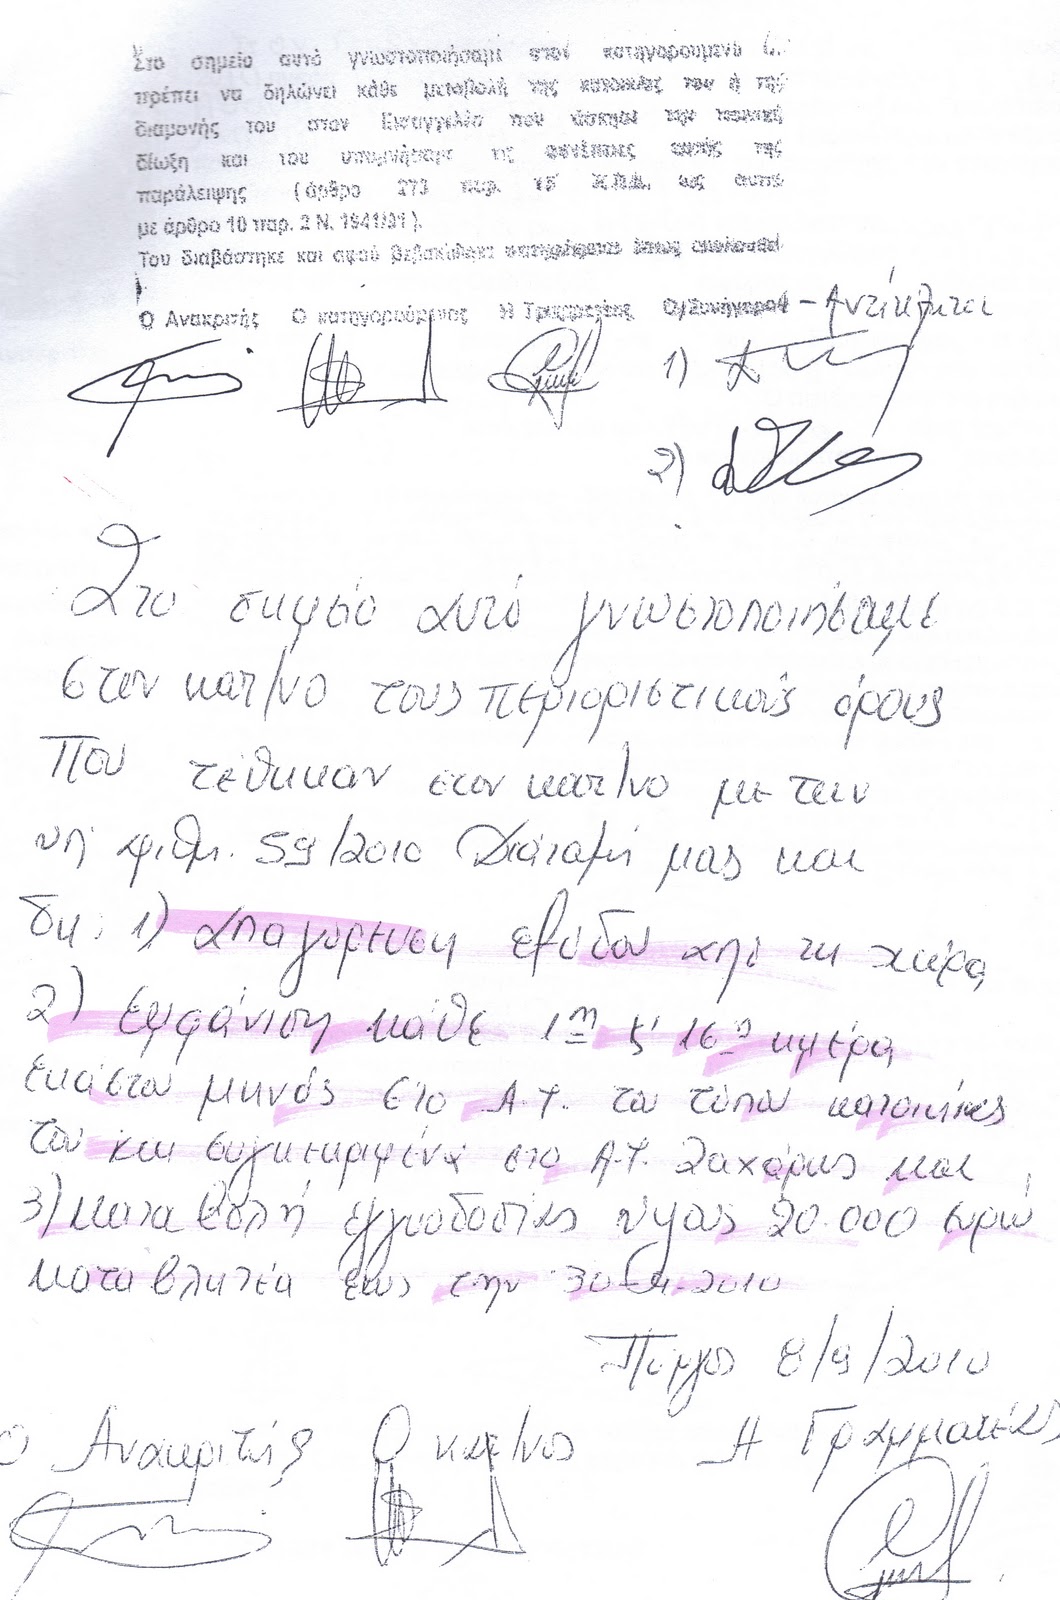 Στο σημείο αυτό γνωστοποιήσαμε στον κατηγορούμενο
πρέπει να δηλώνει κάθε μεταβολή της κατοικίας του ή της
διαμονής του στον Εισαγγελέα που άσκησε την ποινική
δίωξη και του υπομνήσαμε τις συνέπειες αυτής της
παράλειψης (άρθρο 273 παρ. Κ.Π.Δ. ως αυτό
με άρθρο 10 παρ. 2 Ν. 1941/91).
Του διαβάστηκε και αφού βεβαιώθηκε υπογράφεται όπως ακολουθεί
Ο Ανακριτής Ο κατηγορούμενος Η Γραμματέας Οι Συνήγοροι - Αντίκλητοι
1)
2)
Στο σημείο αυτό γνωστοποιήσαμε
στον κατ/νο τους περιοριστικούς όρους
που τέθηκαν στον κατ/νο με την
υπ' αριθμ. 59/2010 Διάταξή μας και
δη: 1) Απαγόρευση εξόδου από τη χώρα
2) Εμφάνιση κάθε 1η & 16η ημέρα
εκάστου μηνός στο Α.Τ. του τόπου κατοικίας
του και συγκεκριμένα στο Α.Τ. Ζαχάρως και
3) καταβολή εγγυοδοσίας ύψους 20.000 ευρώ
καταβλητέα έως την 2010
Πύργος 8/9/2010
Ο Ανακριτής Ο κατ/νος Η Γραμματέας